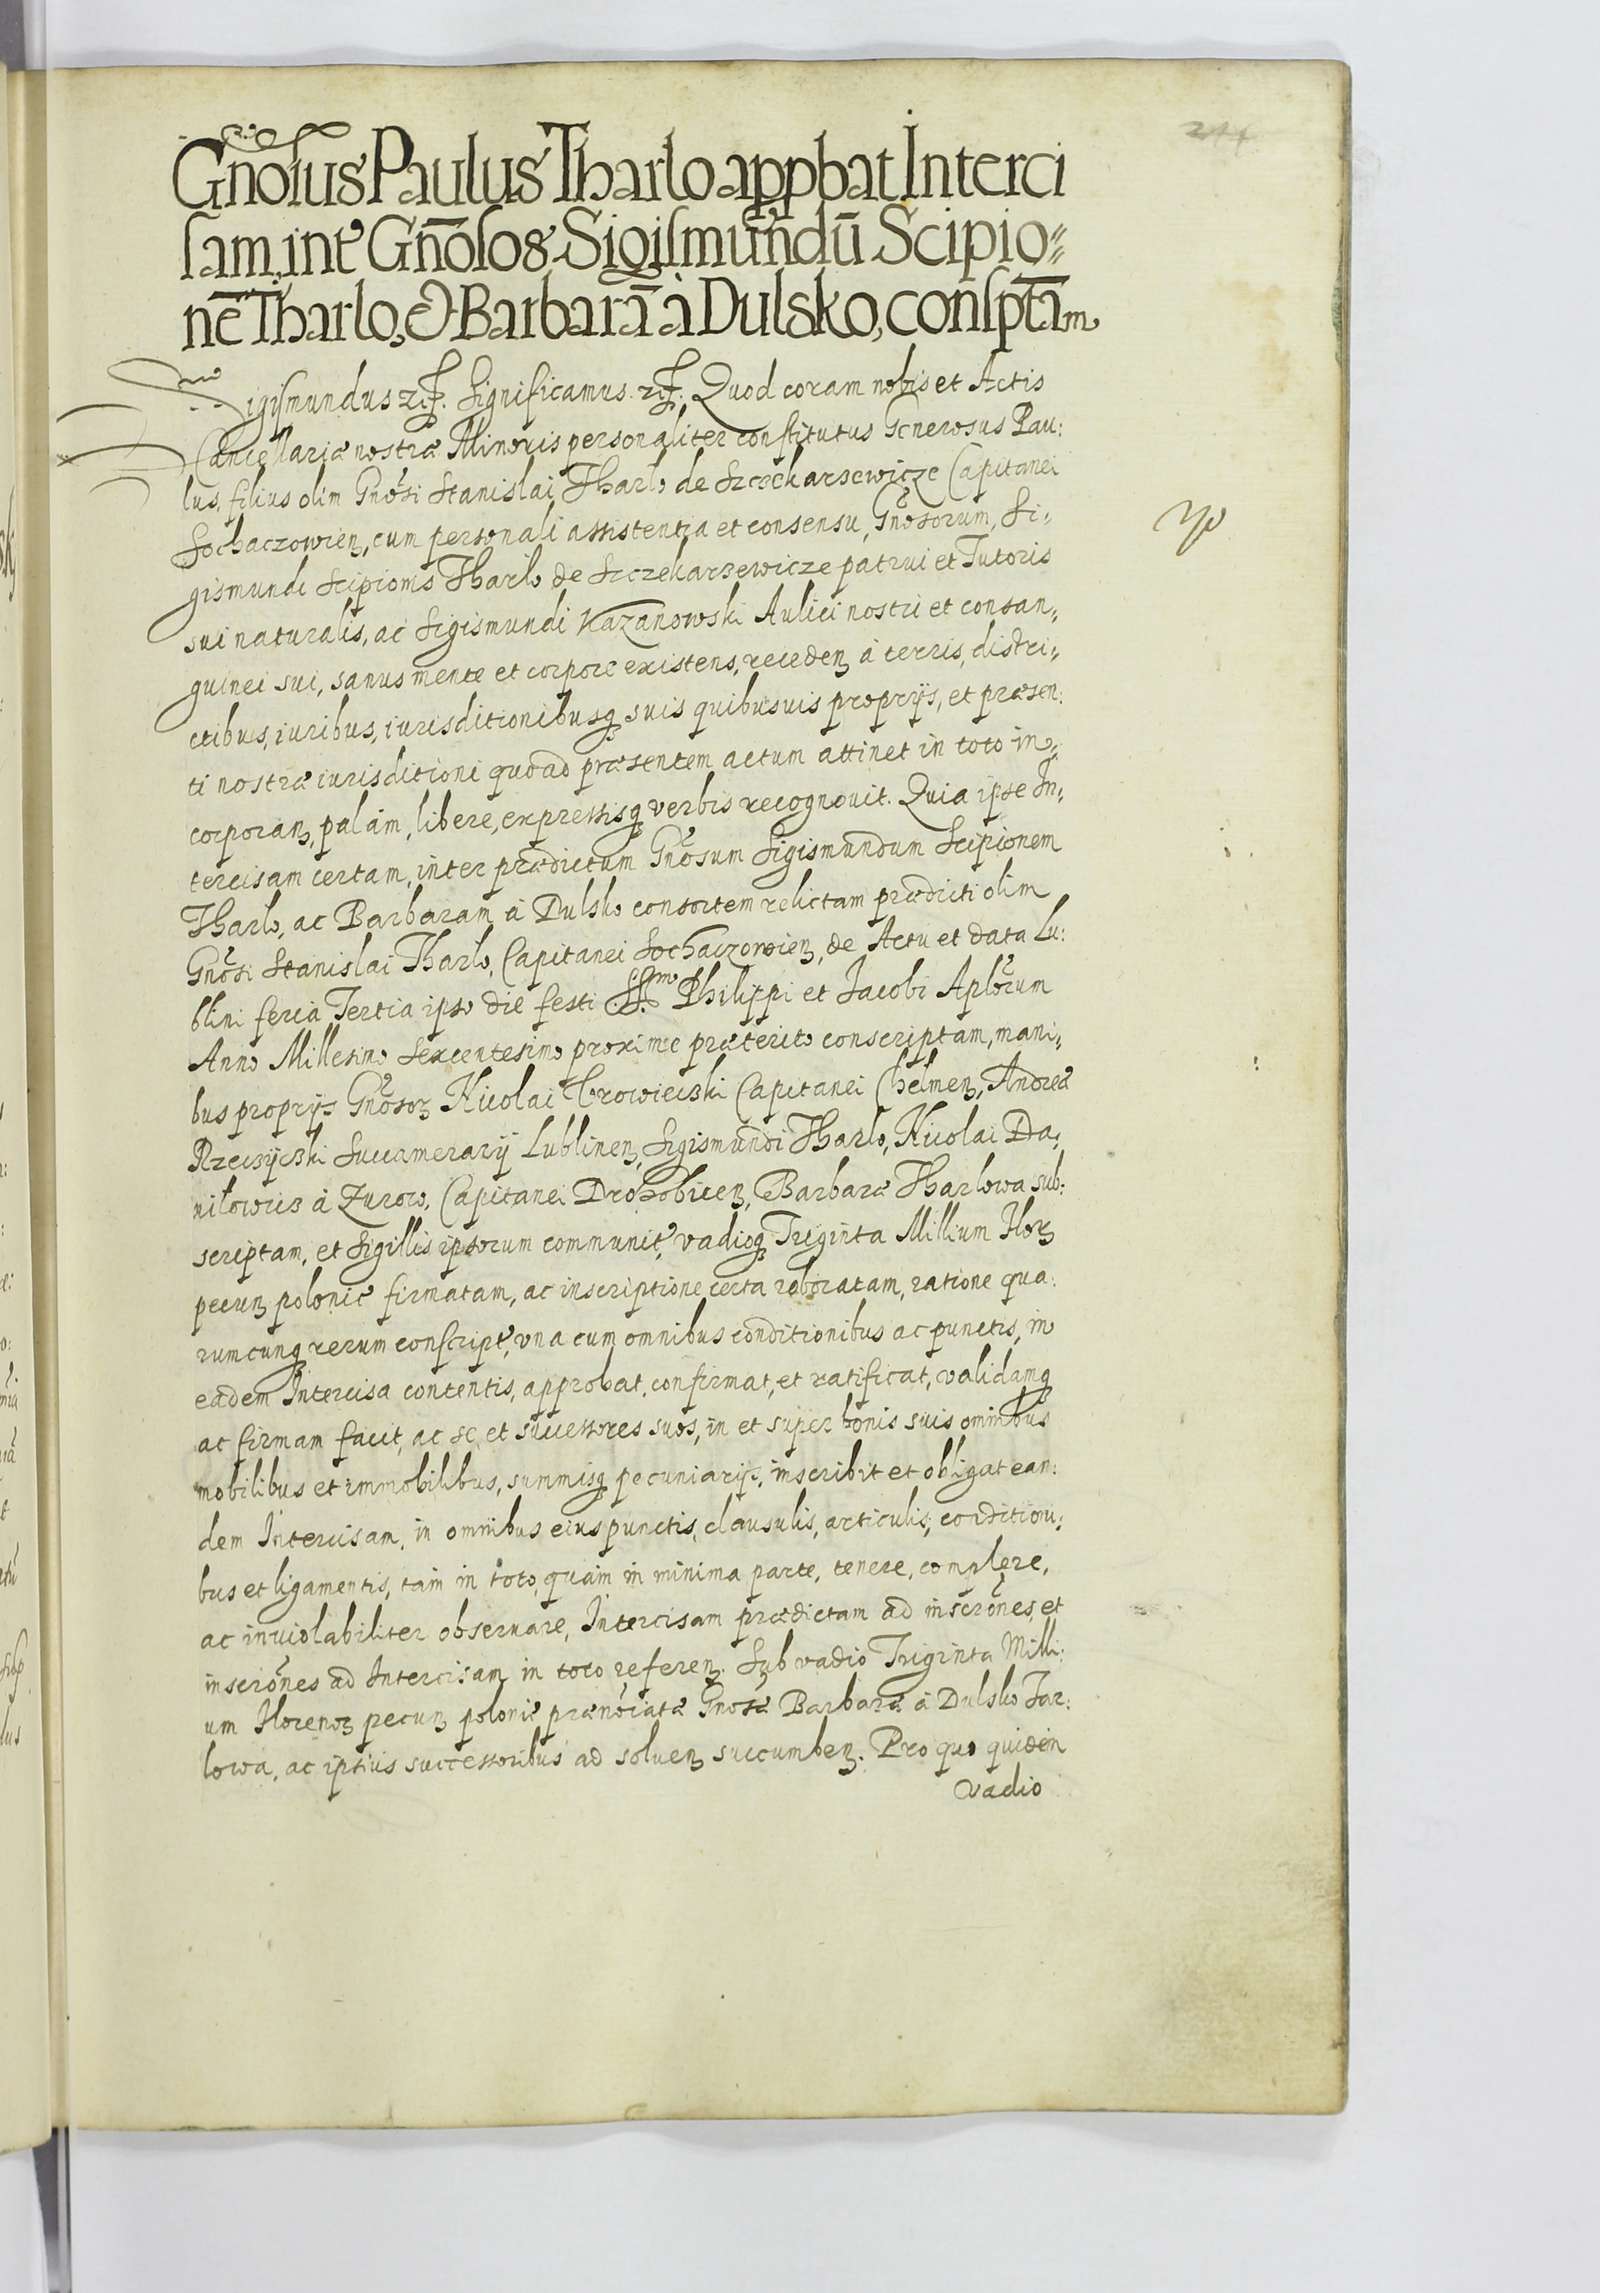 244
Gnosus Paulus Tharlo appbat Interci
sam, inter Gnosos Sigismundū Scipio=
nē Tharlo, & Barbarā à Dulsko, conscptam
Sigismundus etc. Significamus etc. Quod coram nobis et Actis
Cancellariæ nostræ Minoris personaliter constitutus Generosus Pau:
lus, filius olim Gnosi Stanislai Tharlo de Szczekarzewicze Capitanei
Sochaczowien, cum personali assistentia et consensu, Gnosorum, Si=
gismundi Scipionis Tharlo de Szczekarzewicze patrui et Tutoris
sui naturalis, ac Sigismundi Kazanowski Aulici nostri et consan=
guinei sui, sanus mente et corpore existens, receden à terris, distri=
ctibus, iuribus, iurisditionibusq suis quibusuis proprijs, et præsen:
ti nostræ iurisditioni quoad præsentem actum attinet in toto in=
corporan, palàm, libere, expressisq verbis recognouit. Quia ipse In=
tercisam certam, inter prædictum Gnosum Sigismundum Scipionem
Tharlo, ac Barbaram à Dulsko consortem relictam prædicti olim
Gnosi Stanislai Tharlo, Capitanei Sochaczowien, de Actu et data Lu:
blini feria Tertia ipso die festi SS. Philippi et Iacobi Aplorum
Anno Millesimo Sexcentesimo proxime præterito conscriptam, mani=
bus proprijs Gnosor Nicolai Vrowiecski Capitanei Chelmen, Andreæ
Rzeczÿcski Succamerarij Lublinen, Sigismundi Tharlo, Nicolai Da:
nilowicz à Zurow, Capitanei Drohobicen, Barbaræ Tharlowa sub:
scriptam, et Sigillis ipsorum communit, vadioq Triginta Millium Flor
pecun polonic firmatam, ac inscriptione certa roboratam, ratione qua:
rumcunq rerum conscript, vna cum omnibus conditionibus ac punctis, in
eadem Intercisa contentis, approbat, confirmat, et ratificat, validamq
ac firmam facit, ac se, et successores suos, in et super bonis suis omnibus
mobilibus et immobilibus, summisq pecuniarijs, inscribit et obligat ean:
dem Intercisam, in omnibus eius punctis, clausulis, articulis, conditioni:
bus et ligamentis, tàm in toto, quàm in minima parte, tenere, complere,
ac inuiolabiliter obseruare, Intercisam prædictam ad inscrones, et
inscrones ad Intercisam in toto referen. Sub vadio Triginta Milli:
um Florenor pecun polonic prænoiatæ Gnosæ Barbaræ à Dulsko Tar:
lowa, ac ipsius successoribus ad soluen succumben. Pro quo quidem
vadio